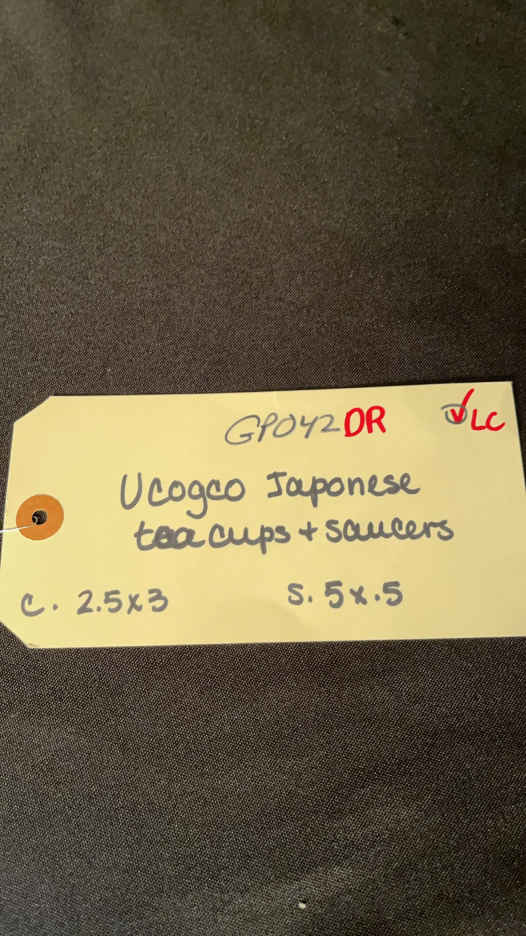 GP042 DR ✓ LC
Ucogco Japonese
tea cups + saucers
C. 2.5x3 S. 5x.5